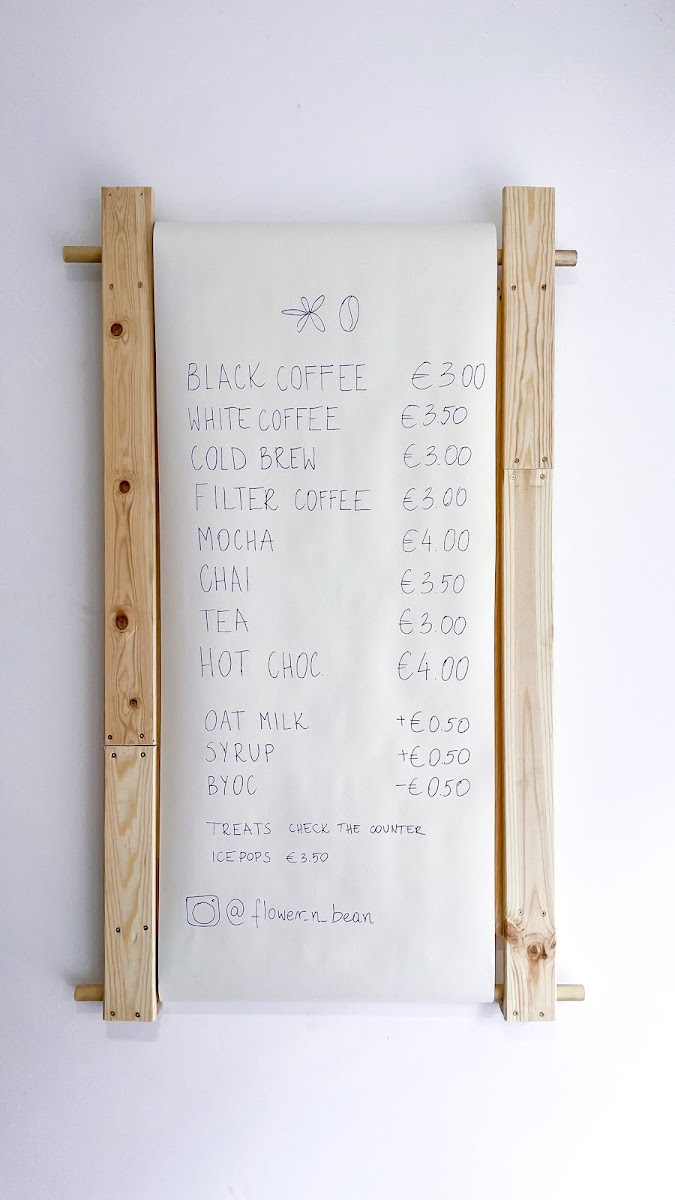 BLACK COFFEE €3.00
WHITE COFFEE €3.50
COLD BREW €3.00
FILTER COFFEE €3.00
MOCHA €4.00
CHAI €3.50
TEA €3.00
HOT CHOC. €4.00
OAT MILK +€0.50
SYRUP +€0.50
BYOC -€0.50
TREATS CHECK THE COUNTER
ICE POPS €3.50
@flower_n_bean